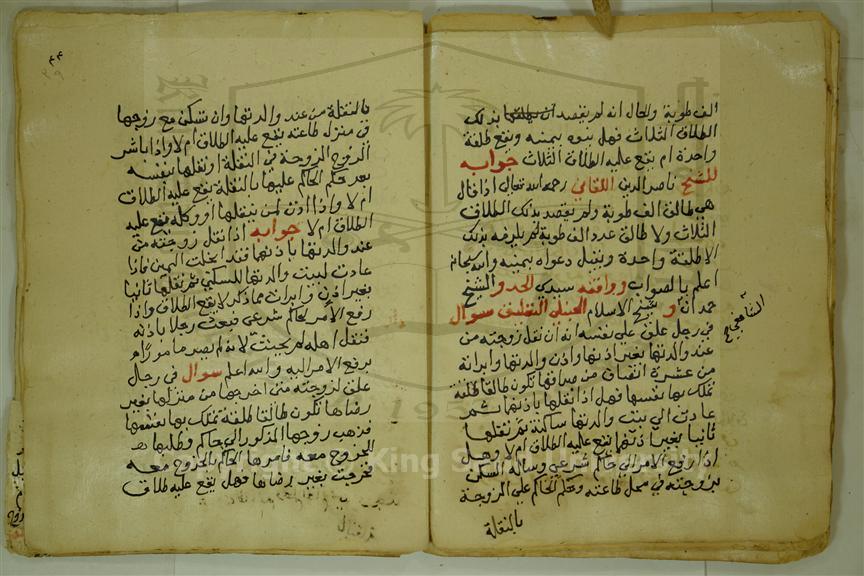 الف طوبة والحال انه لم يقصد ان يطلقها بذلك
الطلاق الثلاث فهل ينوه بيمينه ويقع طلقة
واحدة ام يقع عليه الطلاق الثلاث جوابه
للشيخ ناصر الدين اللقاني رحمه الله تعالى اذا قال
هي طالق الف طوبة ولم يقصد بذلك الطلاق
الثلاث ولا طالق عدد الف طوبة لم يلزمه بذلك
الا طلقة واحدة ويقبل دعواه بيمينه والله سبحانه
اعلم بالصواب ووافقه سيدي الجد والشيخ
حمدان وشيخ الاسلام الحنبلي سوال
في رجل علق على نفسه انه ان نقل زوجته من
عند والدتها بغير اذنها واذن والدتها وابراته
من عشرة انصاف من صداقها تكون طالقا طلقة
تملك بها نفسها فهل اذا نقلها باذنها ثم
عادت الى بيت والدتها ساكنة ثم نقلها
ثانيا بغير اذنها يقع عليه الطلاق ام لا وهل
اذا رفع الامر الى حاكم شرعي وساله السكن
بزوجته في محل طاعته وحكم الحاكم على الزوجة
بالنقلة
٤٤
بالنقلة من عند والدتها وان تسكن مع زوجها
في منزل طاعته يقع عليه الطلاق ام لا واذا باشر
الزوج الزوجة في النقلة او نقلها بنفسه
بعد حكم الحاكم عليها بالنقلة يقع عليه الطلاق
ام لا واذا اذن لمن ينقلها او وكله يقع عليه
الطلاق ام لا جوابه اذا نقل زوجته من
عند والدتها باذنها فقد انحلت اليمين فاذا
عادت لبيت والدتها للسكنى ثم نقلها ثانيا
بغير اذن وابرات مما ذكر لا يقع الطلاق واذا
رفع الامر لحاكم شرعي فبعث رجلا باذنه
فنقل اهله لم يحنث لانه لم يصر ما مر رام
برفع الامر اليه والله اعلم سوال في رجل
علق لزوجته متى اخرجها من منزلها بغير
رضاها تكون طالقا طلقة تملك بها نفسها
فذهب زوجها المذكور الى حاكم وطلبها
للخروج معه فامرها الحاكم بالخروج معه
فخرجت بغير رضاها فهل يقع عليه طلاق